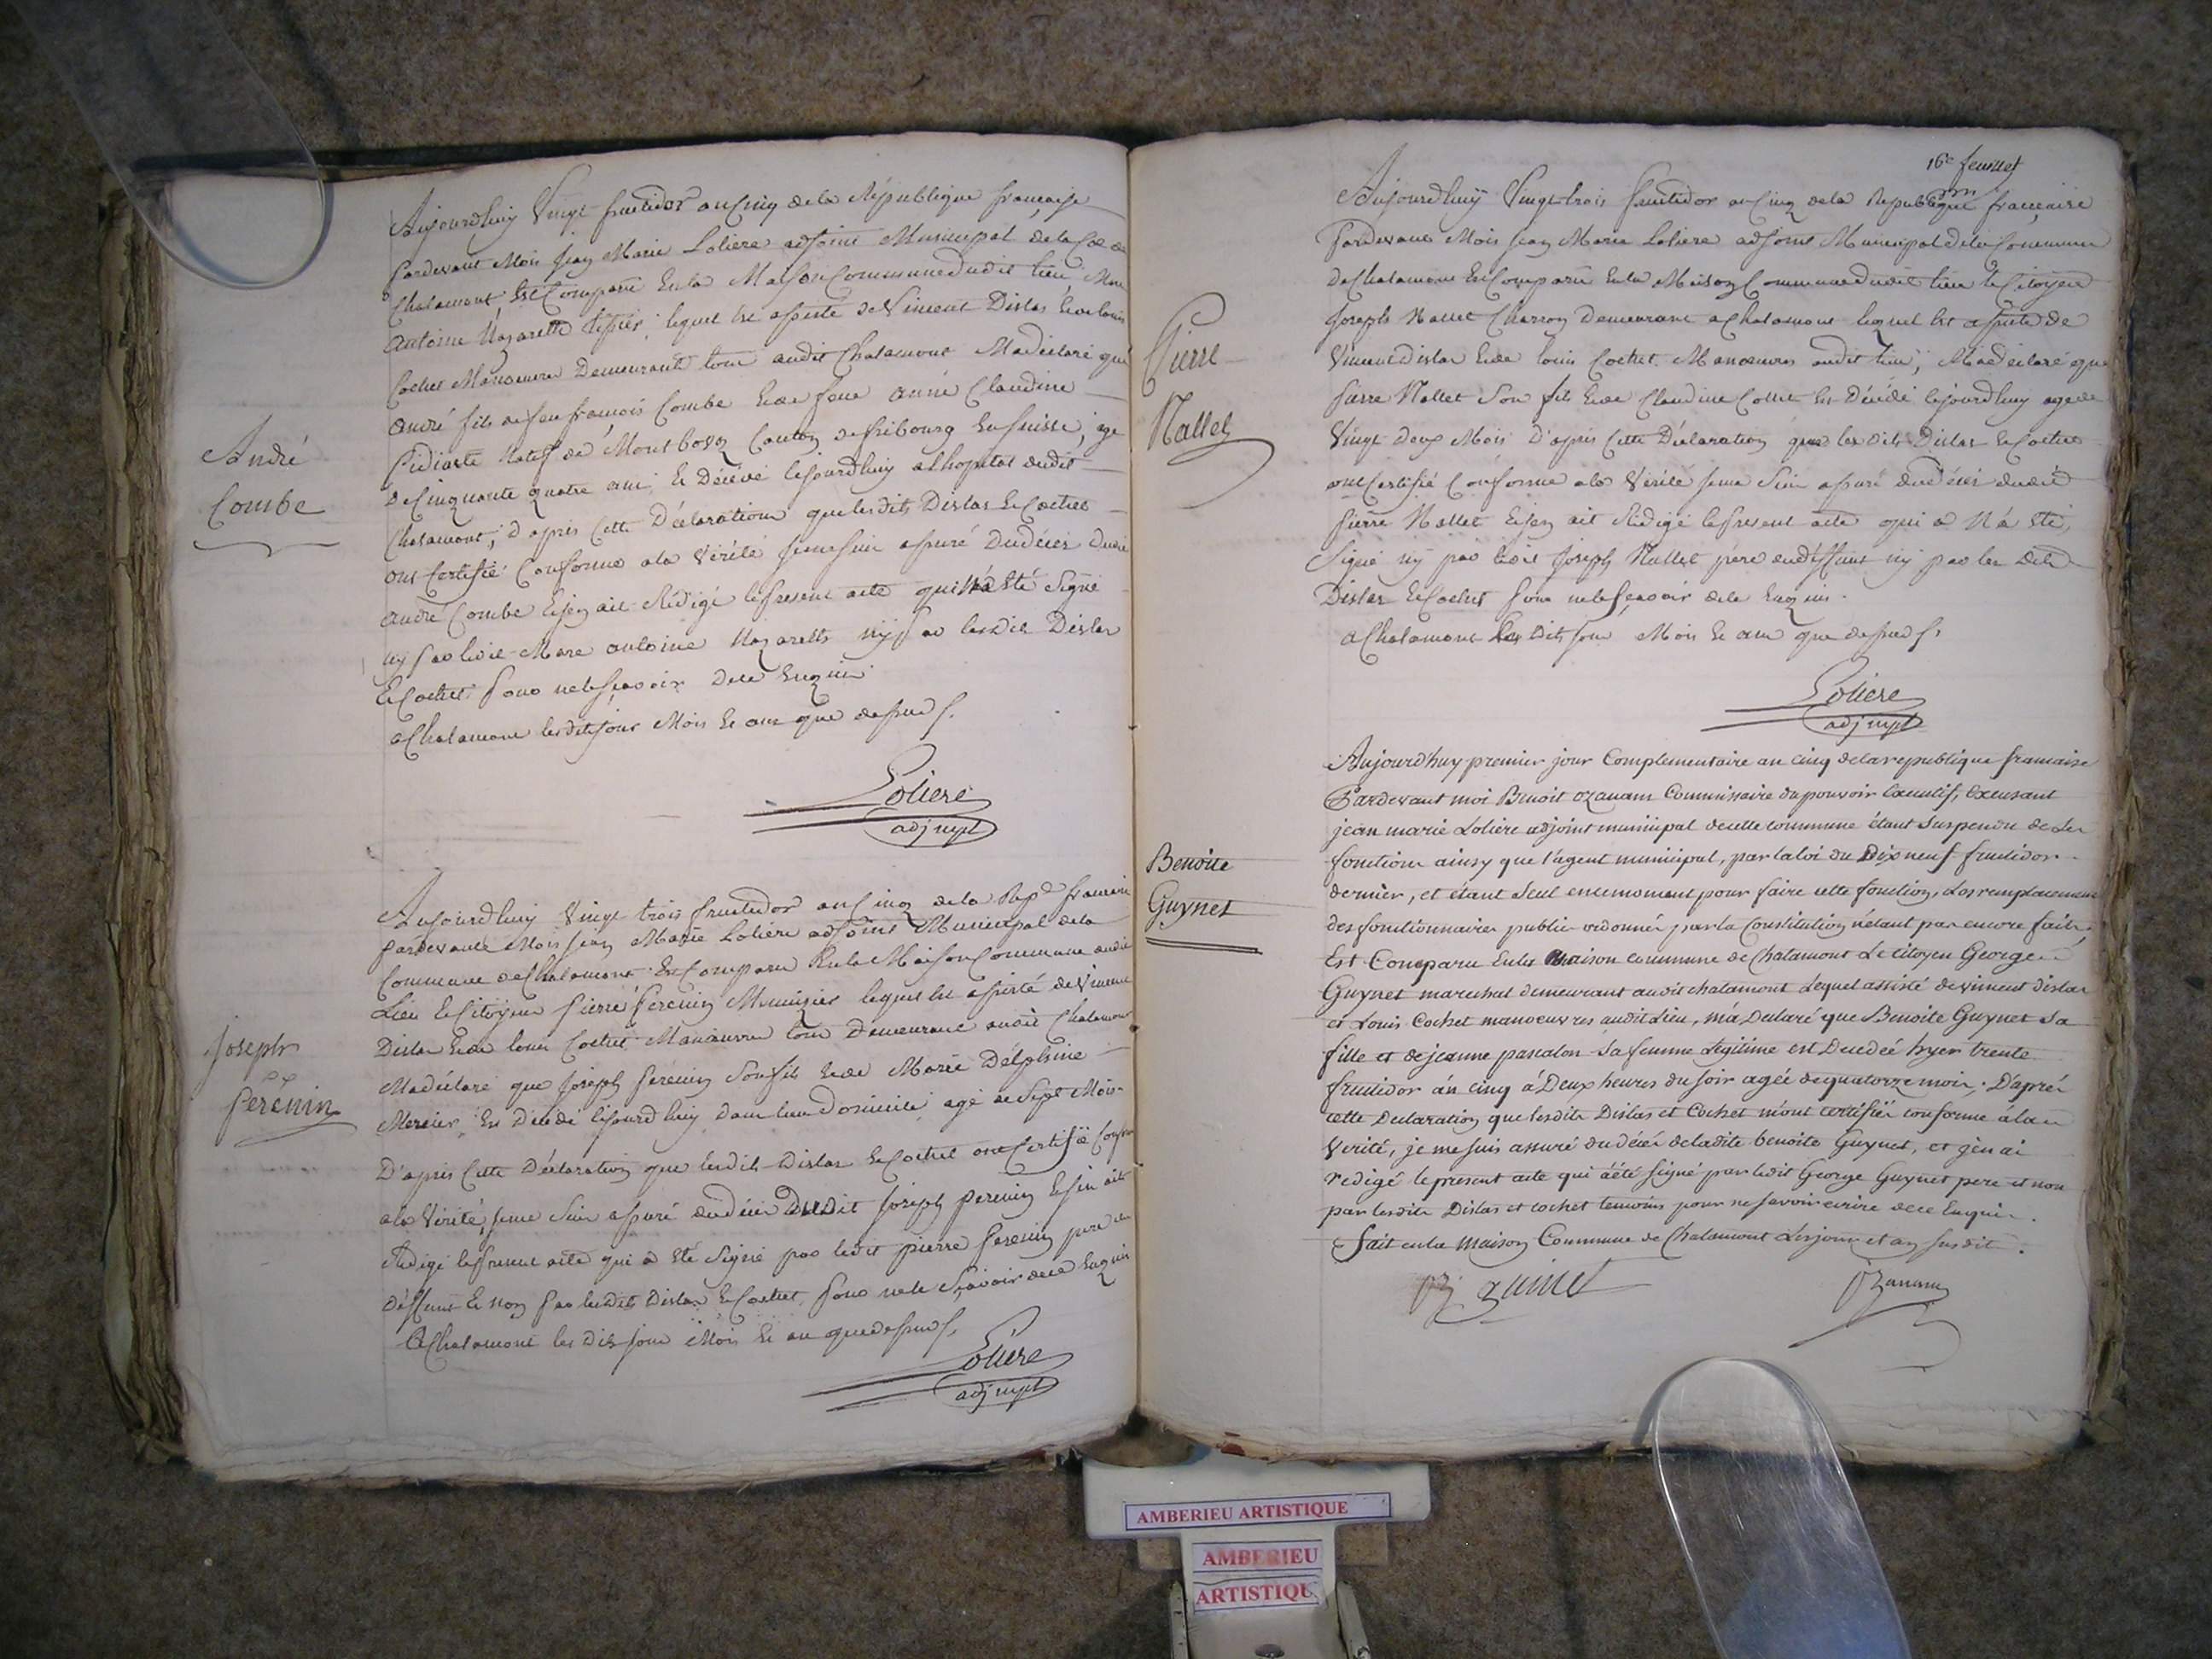 André
Combe
Aujourdhuy Vingt fructidor an Cinq de la République française
Pardevant Mois Jean Marie Loliere adjoint Municipal de la
Chalamont Est Comparu En la Maison Commune dudit lieu Marc
Antoine Nazarette lequel Est assisté de Vincent Dislas Et de louis
Cochet Manoeuvre Demeurants tous audit Chalamont Ma déclaré que
André fils de feu françois Combe Et de feue Anne Claudine
natif de Montbovon Canton de fribourg En suisse, agé
de Cinquante quatre ans Est Décédé Cejourdhuy a lhopital dudit
Chalamont, d'apres Cette Déclaration que lesdits Dislas Et Cochet
ont Certifié Conforme ala Vérité je me suis assuré Dudécès Dudit
André Combe Et jen ait Rédigé le present acte qui n'a Eté Signé
ny par ledit Marc antoine Nazarette ny par lesdits Dislas
Et Cochet pour ne le sçavoir De ce Enquis
a Chalamont lesdits jour Mois Et an que dessus
Loliere
adj mpl
Joseph
Perenin
Aujourdhuy Vingt trois fructidor an Cinq de la Rep française
pardevant Mois Jean Marie Loliere adjoint Municipal de la
Commune de Chalamont Est Comparu En la Maison Commune dudit
Lieu Le Citoyen Pierre Perenin Menuizier lequel Est assisté de Vincent
Dislas Et de louis Cochet Manoeuvre tous Demeurant audit Chalamont
Madéclaré que Joseph Perenin Son fils Et de Marie Délphine
Mercier Est Décédé Cejourdhuy dans leur Domicile agé de Sept Mois
D'apres Cette Déclaration que lesdits Dislas Et Cochet ont Certifié Conforme
ala Vérité, je me Suis assuré du décès Dudit Joseph perenin Et j'en ait
Rédigé le present acte qui a Eté Signé par ledit pierre Perenin pere du
Déffunt Et non par lesdits Dislas Et Cochet pour ne le Sçavoir de ce Enquis
a Chalamont les dits jour Mois Et an que dessus
Loliere
adj mpl
16e feuillet
Pierre
Nallet
Aujourdhuy Vingt trois fructidor an Cinq de la République française
Pardevant Mois Jean Marie Loliere adjoint Municipal de la Commune
de Chalamont Est Comparu En la Maison Commune dudit lieu le Citoyen
Joseph Nallet Charron Demeurant a Chalamont lequel Est assisté de
Vincent Dislas Et de louis Cochet Manoeuvres audit lieu, Ma déclaré que
Pierre Nallet Son fils Et de Claudine Est Décédé Cejourdhuy agé de
Vingt deux Mois D'apres Cette Déclaration que lesdits Dislas Et Cochet
ont Certifié Conforme ala Vérité je me Suis assuré du décès dudit
Pierre Nallet Et jen ait Rédigé le present acte qui a N'a Eté
Signé ny par ledit Joseph Nallet père du déffunt ny par les dits
Dislas Et Cochet pour ne le Sçavoir de ce Enquis.
a Chalamont Les Dits jour Mois Et an que dessus
Loliere
adj mpl
Benoite
Guynet
Aujourd'huy premier jour Complementaire an cinq de la republique francaise
Pardevant moi Benoit Ozanam Commissaire du pouvoir Executif, Excusant
jean marie Loliere adjoint municipal de cette commune étant suspendu de ses
fonctions ainsy que l'agent municipal, par la loi du Dix neuf fructidor
dernier, et étant seul en ce moment pour faire cette fonction, Les remplacemens
des fonctionnaires publics ordonnés par la Constitution n'étant pas encore faits,
Est Comparu En la Maison commune de Chalamont Le citoyen George
Guynet marechal demeurant audit chalamont Lequel assisté de vincent dislas
et Louis Cochet manoeuvres audit Lieu, m'a Declaré que Benoite Guynet sa
fille et de jeanne pascalon sa femme Legitime est Decedée hyer trente
fructidor an cinq à Deux heures du soir agée de quatorze mois; D'après
cette Declaration que lesdits Dislas et Cochet m'ont certifiés conforme à la
Verité, je me suis assuré du décès de ladite benoite Guynet, et j'en ai
redigé le present acte qui a été signé par ledit George Guynet pere et non
par lesdits Dislas et cochet temoins pour ne savoir ecrire de ce Enquis.
Fait en la maison Commune de Chalamont Les jour et an susdits.
Ozanam
AMBERIEU ARTISTIQUE
AMBERIEU
ARTISTIQU